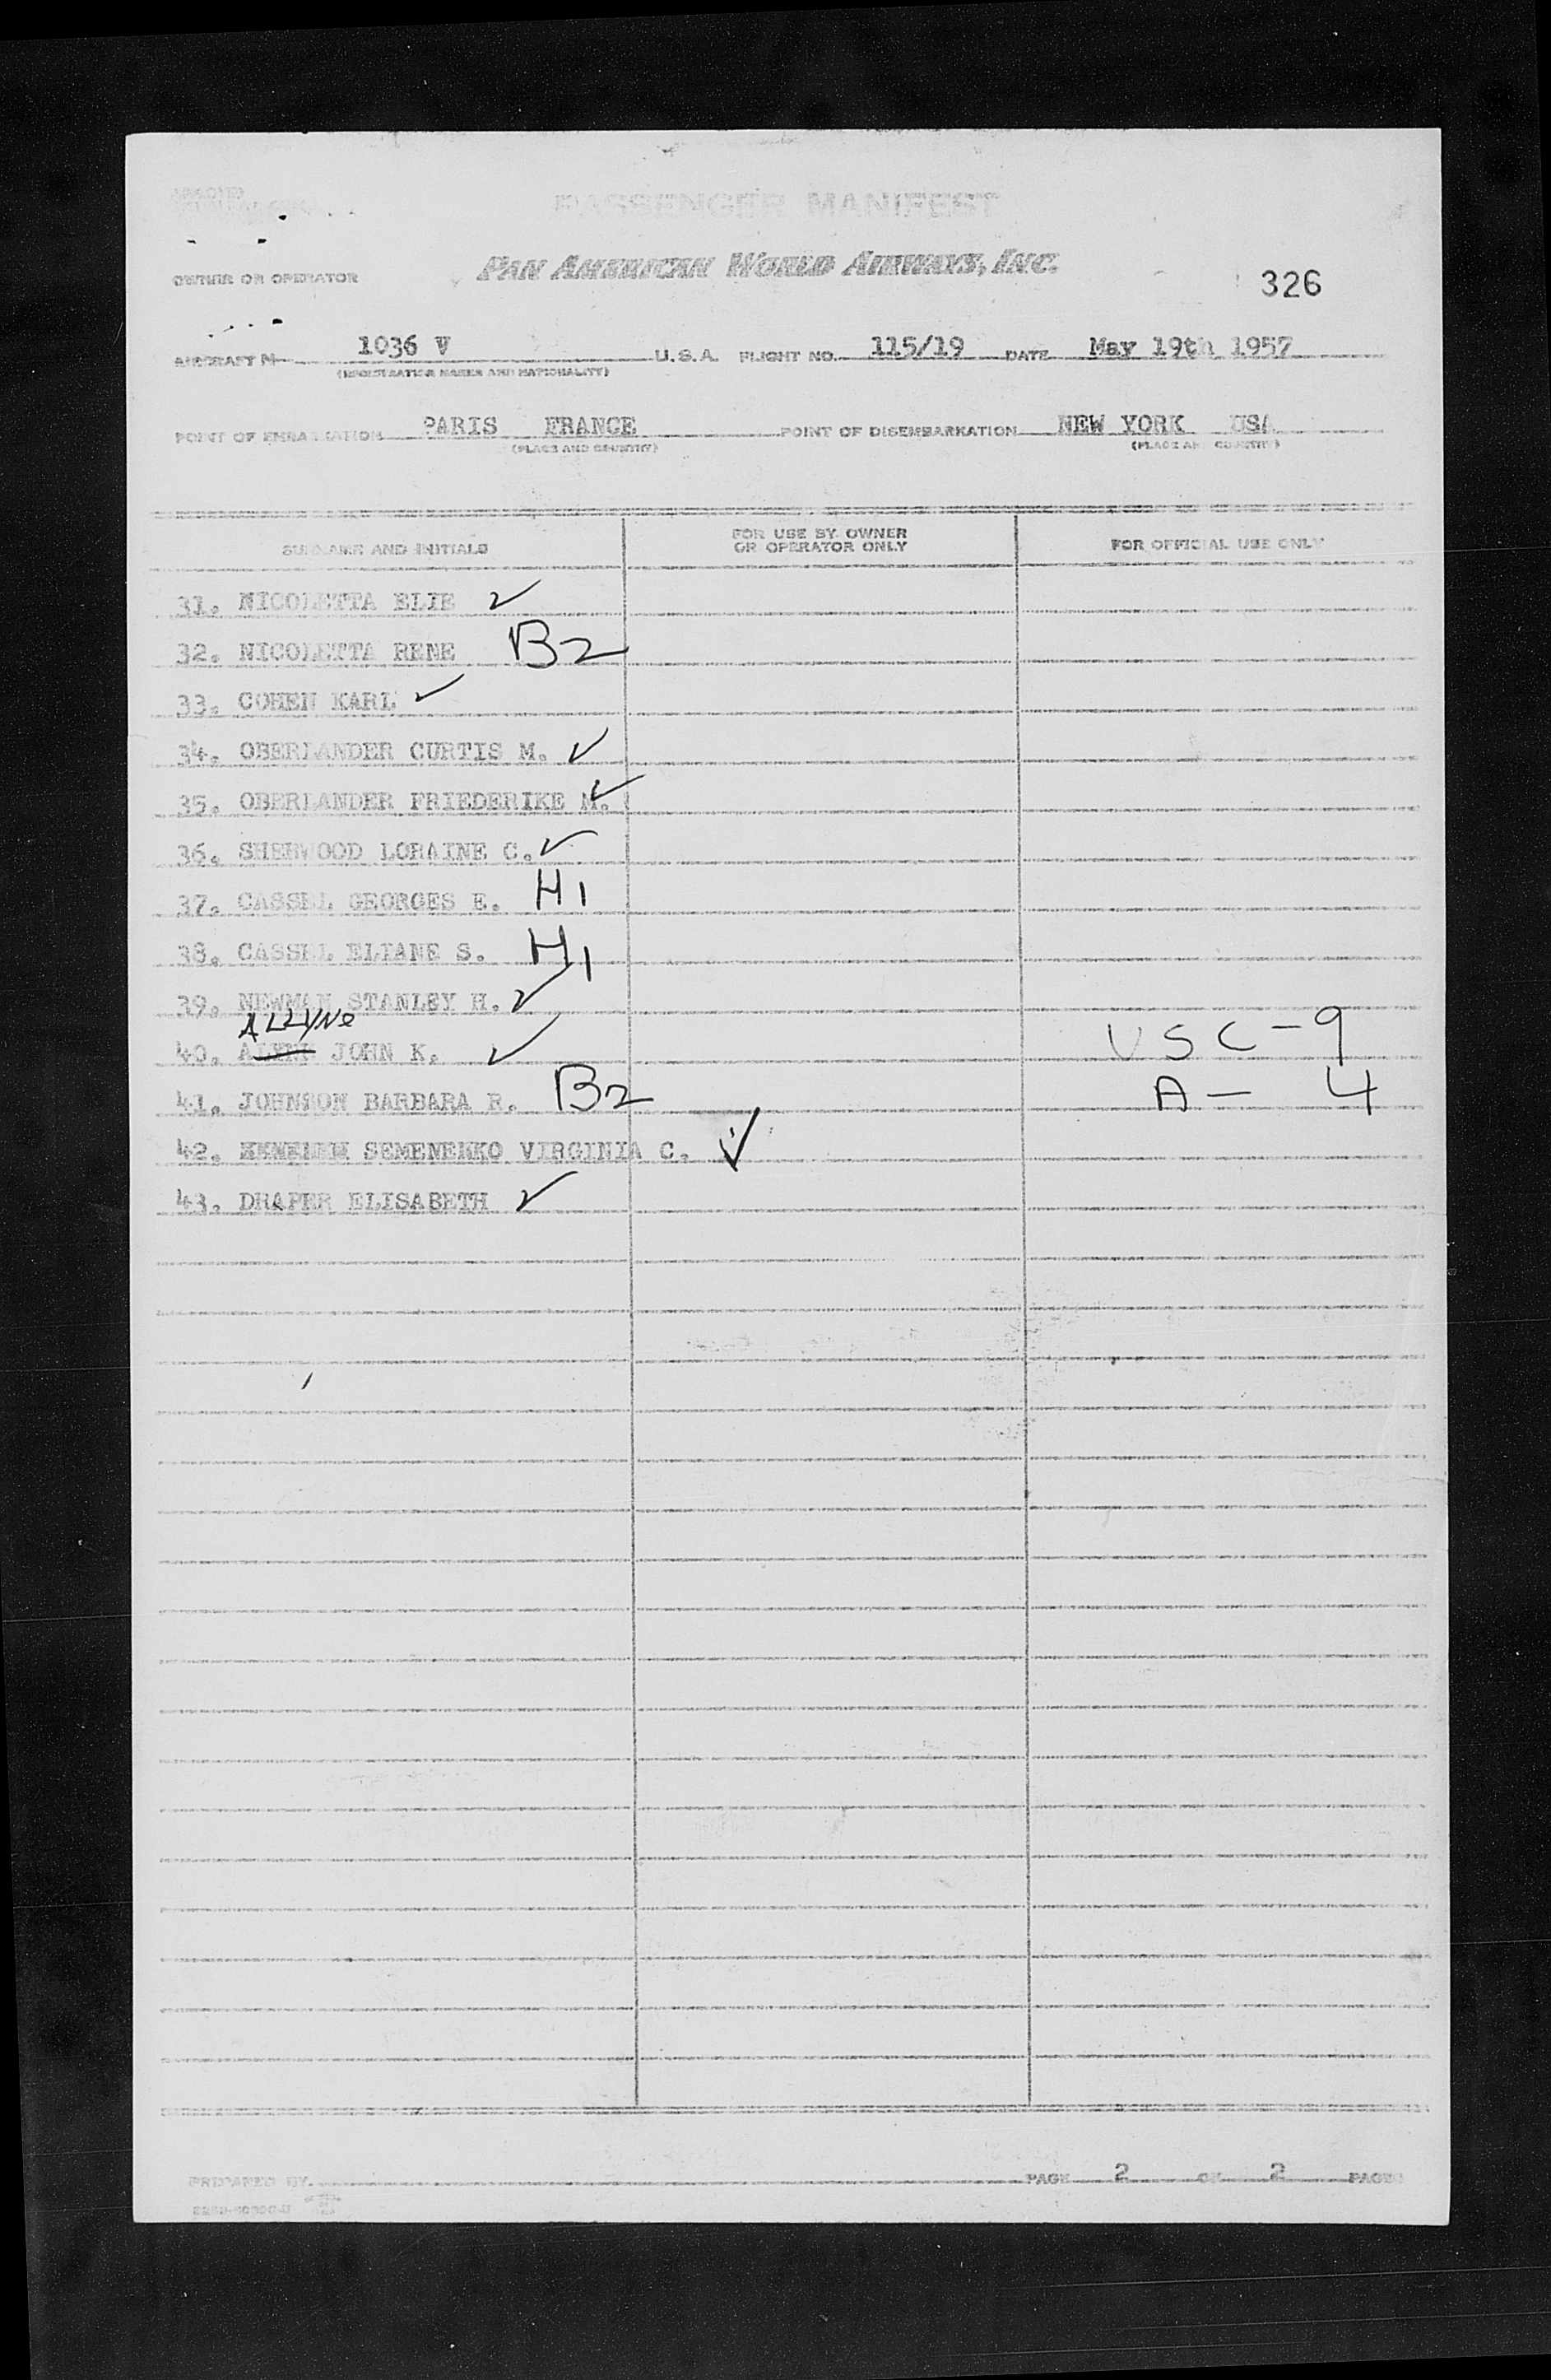 PASSENGER MANIFEST
OWNER OR OPERATOR PAN AMERICAN WORLD AIRWAYS, INC. 326
AIRCRAFT N 1036 V U.S.A. FLIGHT NO. 115/19 DATE May 19th 1957
(REGISTRATION MARKS AND NATIONALITY)
POINT OF EMBARKATION PARIS FRANCE POINT OF DISEMBARKATION NEW YORK USA
(PLACE AND COUNTRY) (PLACE AND COUNTRY)
SURNAME AND INITIALS FOR USE BY OWNER OR OPERATOR ONLY FOR OFFICIAL USE ONLY
31. NICOLETTA ELIE ✓
32. NICOLETTA RENE B2
33. COHEN KARL ✓
34. OBERLANDER CURTIS M. ✓
35. OBERLANDER FRIEDERIKE M. ✓
36. SHERWOOD LORAINE C. ✓
37. CASSEL GEORGES E. H1
38. CASSEL ELIANE S. H1
39. NEWMAN STANLEY H. ✓
ALLYNe
40. JOHN K. ✓ USC-9
41. JOHNSON BARBARA R. B2 A- 4
42. SEMENENKO VIRGINIA C. ✓
43. DRAPER ELISABETH ✓
PREPARED BY PAGE 2 OF 2 PAGES